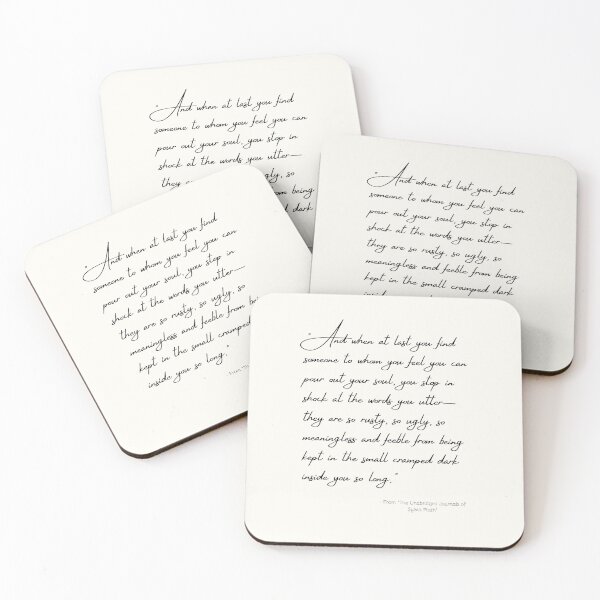 "And when at last you find
someone to whom you feel you can
pour out your soul, you stop in
shock at the words you utter—
they are so rusty, so ugly, so
from being
dark
"And when at last you find
someone to whom you feel you can
pour out your soul, you stop in
shock at the words you utter—
they are so rusty, so ugly, so
meaningless and feeble from being
kept in the small cramped dark
inside
"And when at last you find
someone to whom you feel you can
pour out your soul, you stop in
shock at the words you utter—
they are so rusty, so ugly, so
meaningless and feeble from
kept in the small cramped
inside you so long."
From
"And when at last you find
someone to whom you feel you can
pour out your soul, you stop in
shock at the words you utter—
they are so rusty, so ugly, so
meaningless and feeble from being
kept in the small cramped dark
inside you so long."
From 'The Unabridged Journals of
Sylvia Plath'